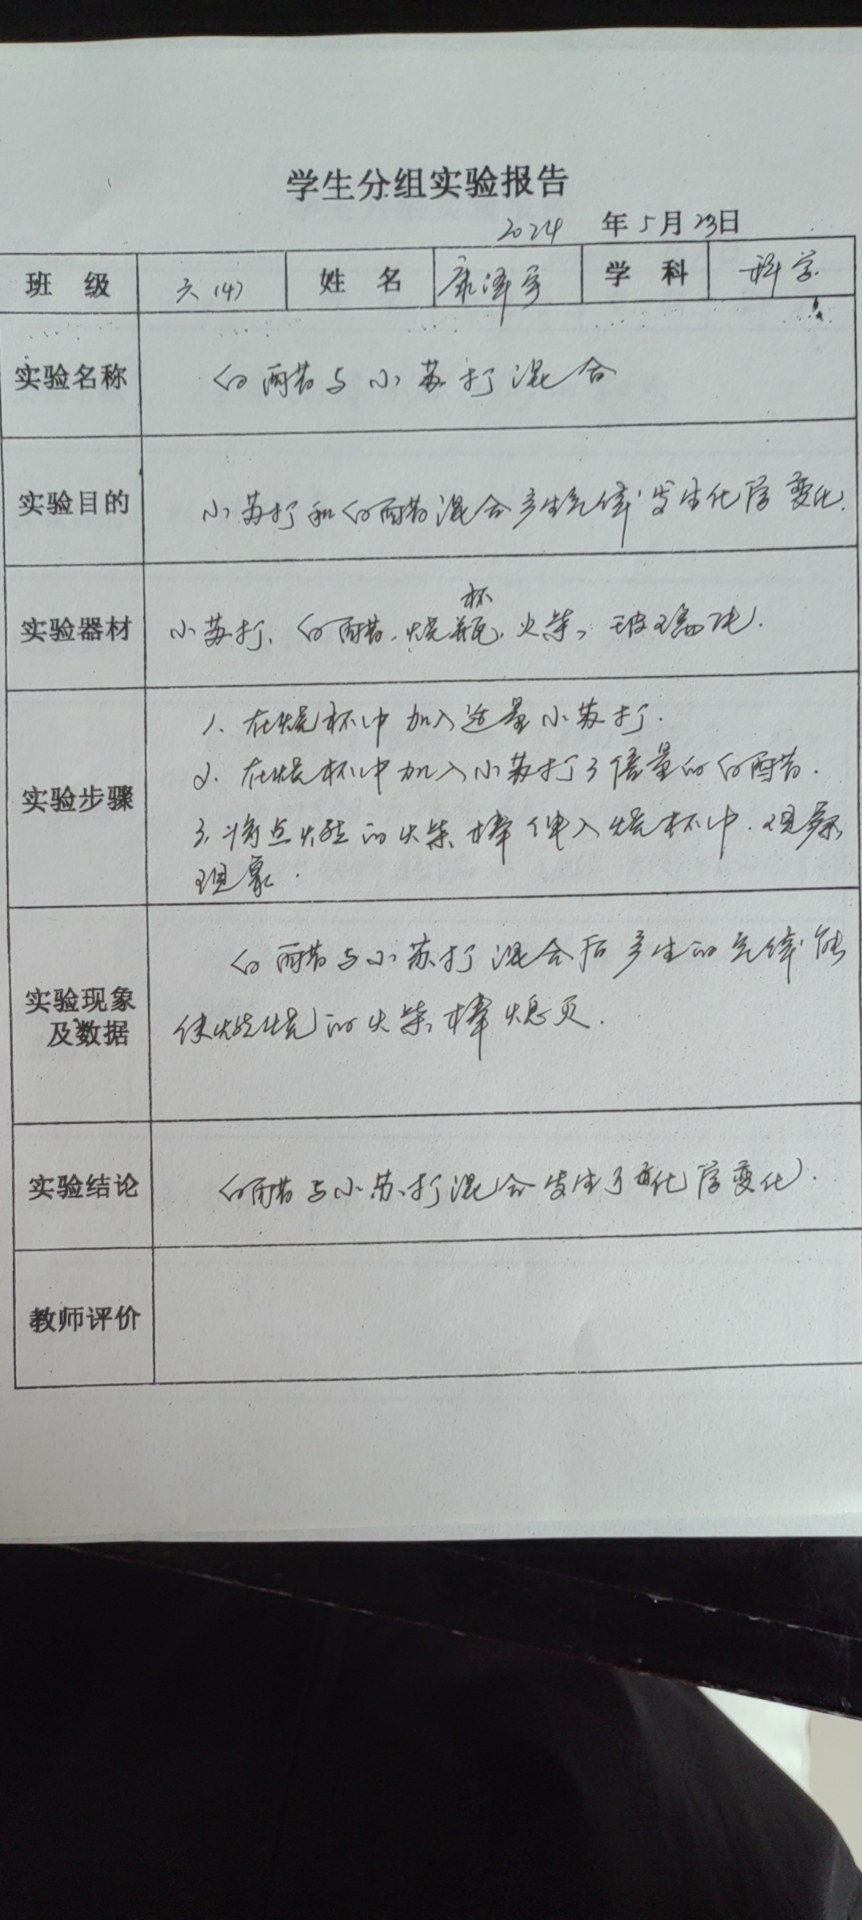 学生分组实验报告
2024 年 5 月 23 日
班 级 六(4) 姓 名 康泽宇 学 科 科学
实验名称 白醋与小苏打混合
实验目的 小苏打和白醋混合产生气体,发生化学变化.
杯
实验器材 小苏打、白醋、烧瓶、火柴、玻璃片.
1. 在烧杯中加入适量小苏打.
实验步骤 2. 在烧杯中加入小苏打3倍量的白醋.
3. 将点燃的火柴棒伸入烧杯中.观察
现象.
白醋与小苏打混合后产生的气体能
实验现象
及数据 使燃烧的火柴棒熄灭.
实验结论 白醋与小苏打混合发生了化学变化.
教师评价